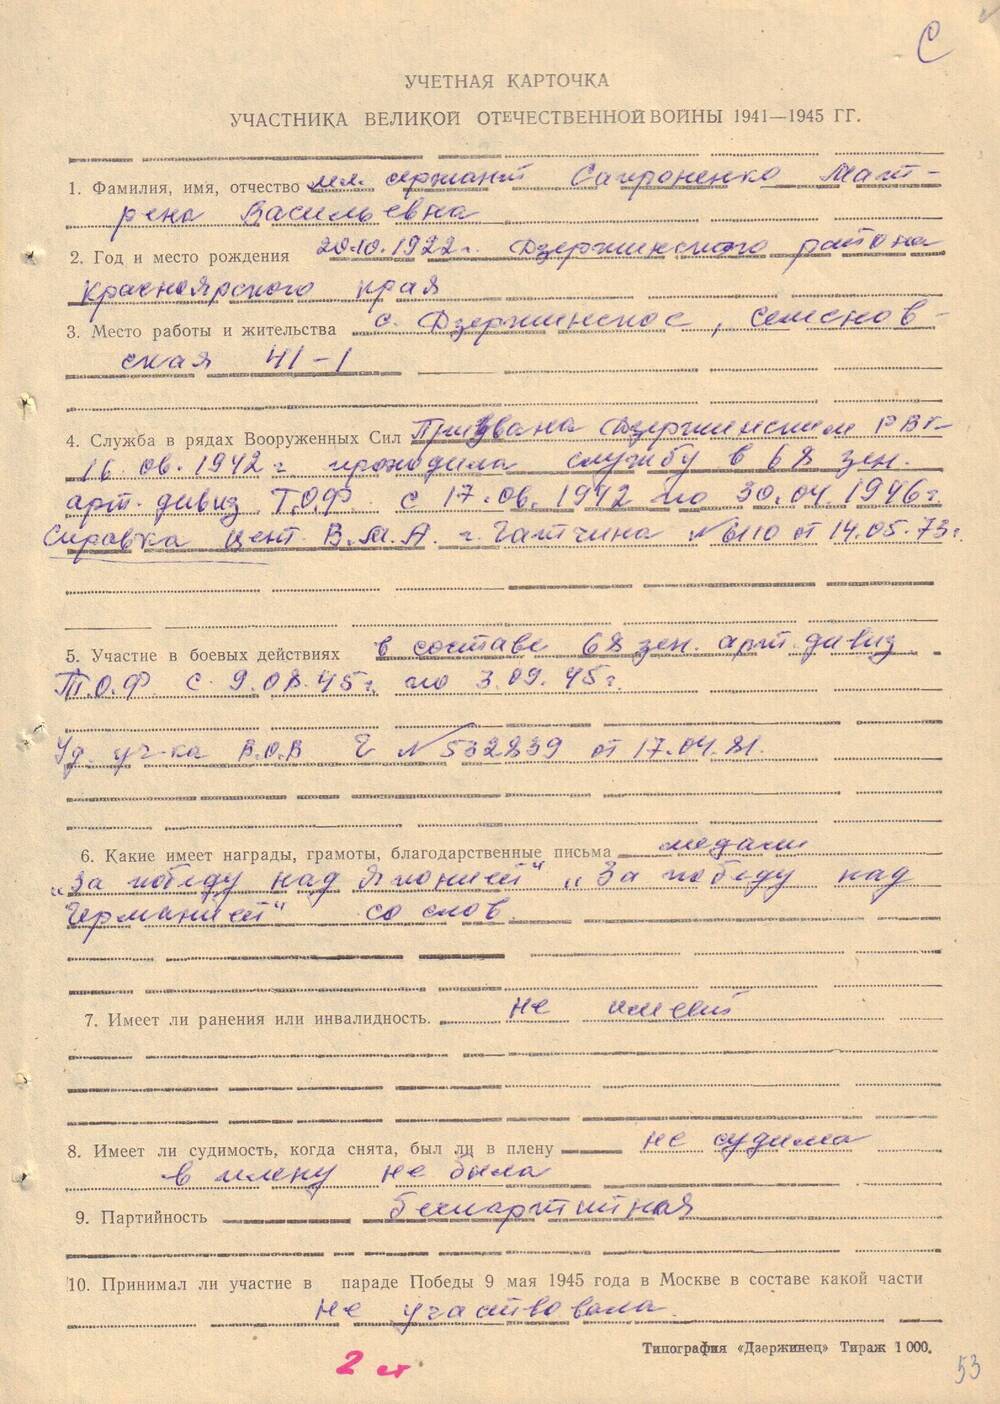 С
УЧЕТНАЯ КАРТОЧКА
УЧАСТНИКА ВЕЛИКОЙ ОТЕЧЕСТВЕННОЙ ВОЙНЫ 1941—1945 ГГ.
1. Фамилия, имя, отчество мл. сержант Сапроненко Мат-
рена Васильевна
2. Год и место рождения 20.10.1922 г. Дзержинского района
Красноярского края
3. Место работы и жительства с. Дзержинское, Семенов-
ская 41-1
4. Служба в рядах Вооруженных Сил Призвана Дзержинским РВК
16.06.1942 г. проходила службу в 68 зен.
арт. дивиз Т.О.Ф. с 17.06.1942 по 30.04.1946 г.
Справка Цент. В.М.А. г. Гатчина № 6110 от 14.05.73 г.
5. Участие в боевых действиях в составе 68 зен. арт. дивиз
Т.О.Ф. с 9.08.45 г. по 3.09.45 г.
Уд. уч-ка В.О.В Г № 532839 от 17.04.81.
6. Какие имеет награды, грамоты, благодарственные письма медали
„За победу над Японией" „За победу над
Германией" со слов.
7. Имеет ли ранения или инвалидность. не имеет
8. Имеет ли судимость, когда снята, был ли в плену не судима
в плену не была
9. Партийность беспартийная
10. Принимал ли участие в параде Победы 9 мая 1945 года в Москве в составе какой части
не участвовала.
Типография «Дзержинец» Тираж 1 000.
2 ст
53